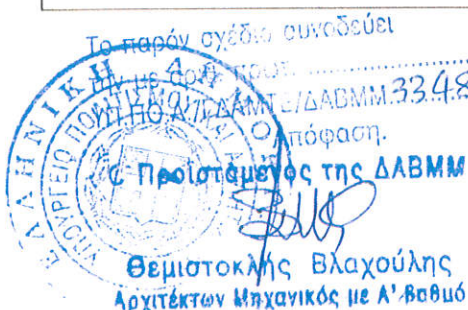 Το παρόν σχέδιο συνοδεύει
την με αριθ. πρωτ. ....................
ΔΑΜΤΕ/ΔΑΒΜΜ.3348
απόφαση.
Ο Προϊστάμενος της ΔΑΒΜΜ
Θεμιστοκλής Βλαχούλης
Αρχιτέκτων Μηχανικός με Α' βαθμό
ΕΛΛΗΝΙΚΗ
ΥΠΟΥΡΓΕΙΟ ΠΟΛΙΤΙΣΜΟΥ ΚΑΙ